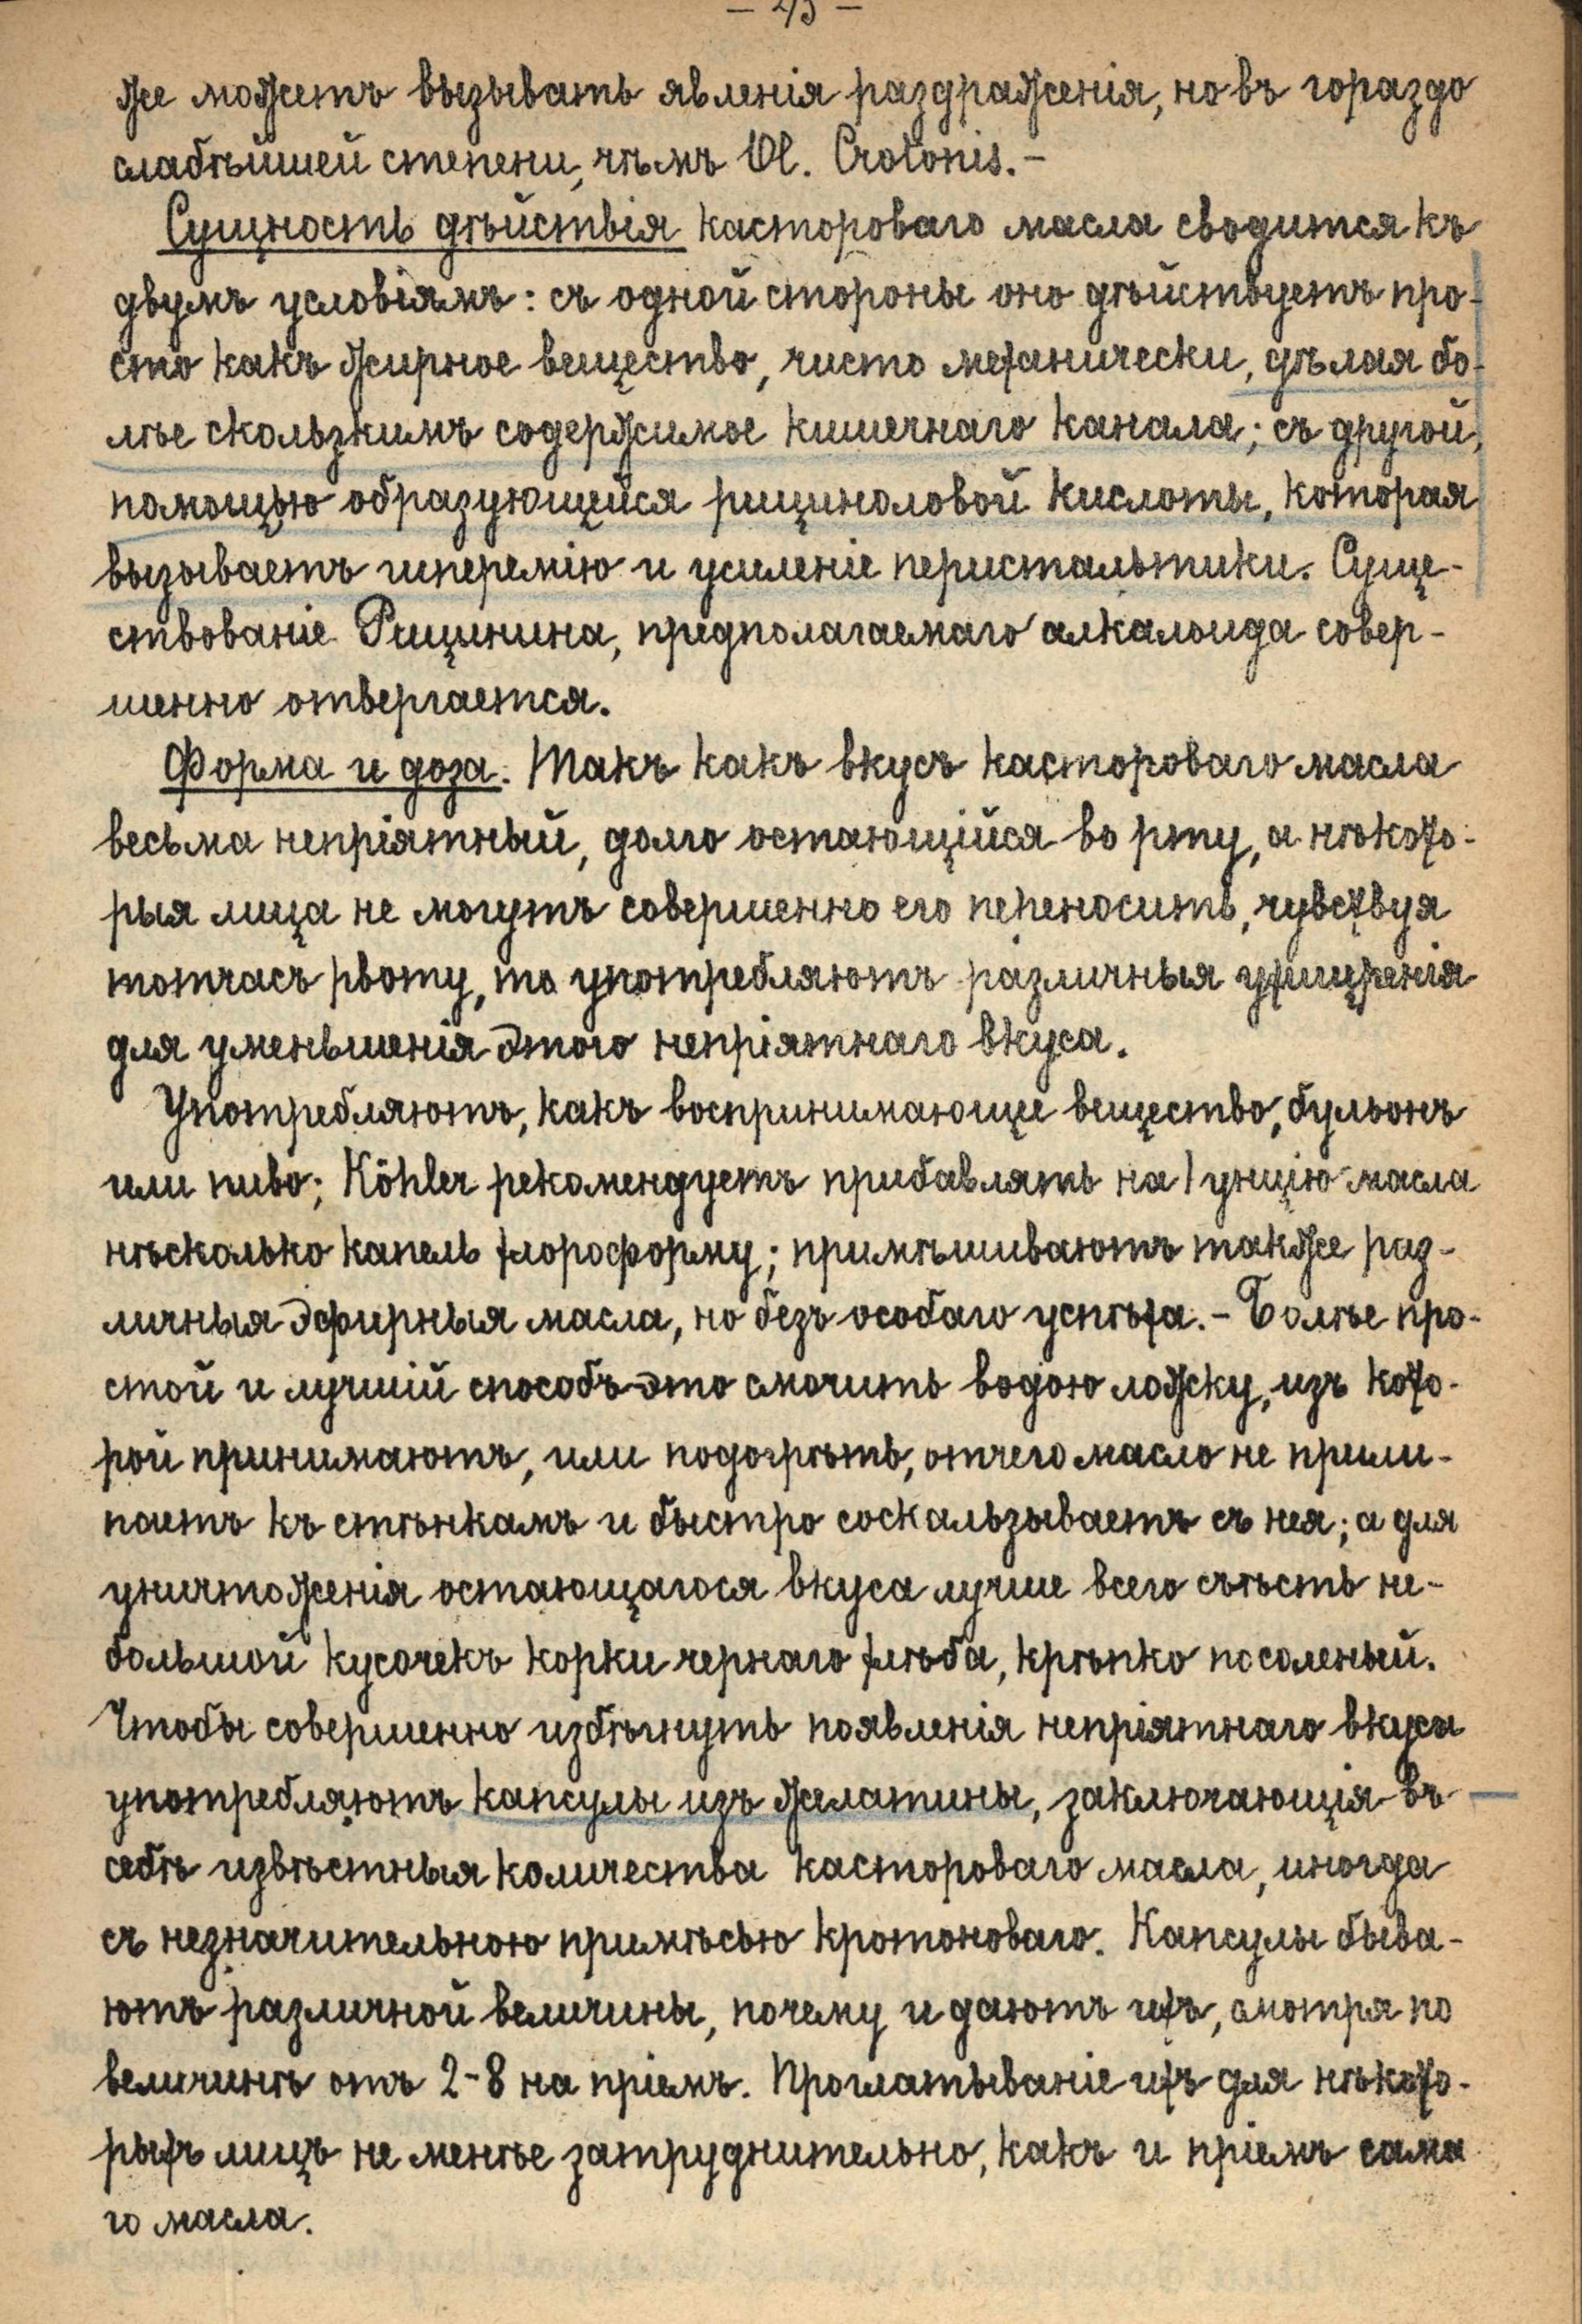 же можетъ вызывать явленія раздраженія, но въ гораздо
слабѣйшей степени, чѣмъ Ol. Crotonis.-
Сущность дѣйствія кастороваго масла сводится къ
двумъ условіямъ: съ одной стороны оно дѣйствуетъ про-
сто какъ жирное вещество, чисто механически, дѣлая бо-
лѣе скользкимъ содержимое кишечнаго канала; съ другой,
помощью образующейся рициноловой кислоты, которая
вызываетъ гиперемію и усиленіе перистальтики. Суще-
ствованіе Рицинина, предполагаемаго алкалоида совер-
шенно отвергается.
Форма и доза. Такъ какъ вкусъ кастороваго масла
весьма непріятный, долго остающійся во рту, а нѣкото-
рыя лица не могутъ совершенно его переносить, чувствуя
тотчасъ рвоту, то употребляютъ различныя ухищренія
для уменьшенія этого непріятнаго вкуса.
Употребляютъ, какъ воспринимающее вещество, бульонъ
или пиво; Köhler рекомендуетъ прибавлять на 1 унцію масла
нѣсколько капель хлороформу; примѣшиваютъ также раз-
личныя эфирныя масла, но безъ особаго успѣха.- Болѣе про-
стой и лучшій способъ-это смочить водою ложку, изъ кото-
рой принимаютъ, или подогрѣть, отчего масло не прили-
паетъ къ стѣнкамъ и быстро соскальзываетъ съ нея; а для
уничтоженія остающагося вкуса лучше всего съѣсть не-
большой кусочекъ корки чернаго хлѣба, крѣпко посоленый.
Чтобы совершенно избѣгнуть появленія непріятнаго вкуса
употребляютъ капсулы изъ желатины, заключающія въ
себѣ извѣстныя количества кастороваго масла, иногда
съ незначительною примѣсью кротоноваго. Капсулы быва-
ютъ различной величины, почему и даютъ ихъ, смотря по
величинѣ отъ 2-8 на пріемъ. Проглатываніе ихъ для нѣкото-
рыхъ лицъ не менѣе затруднительно, какъ и пріемъ сама
го масла.